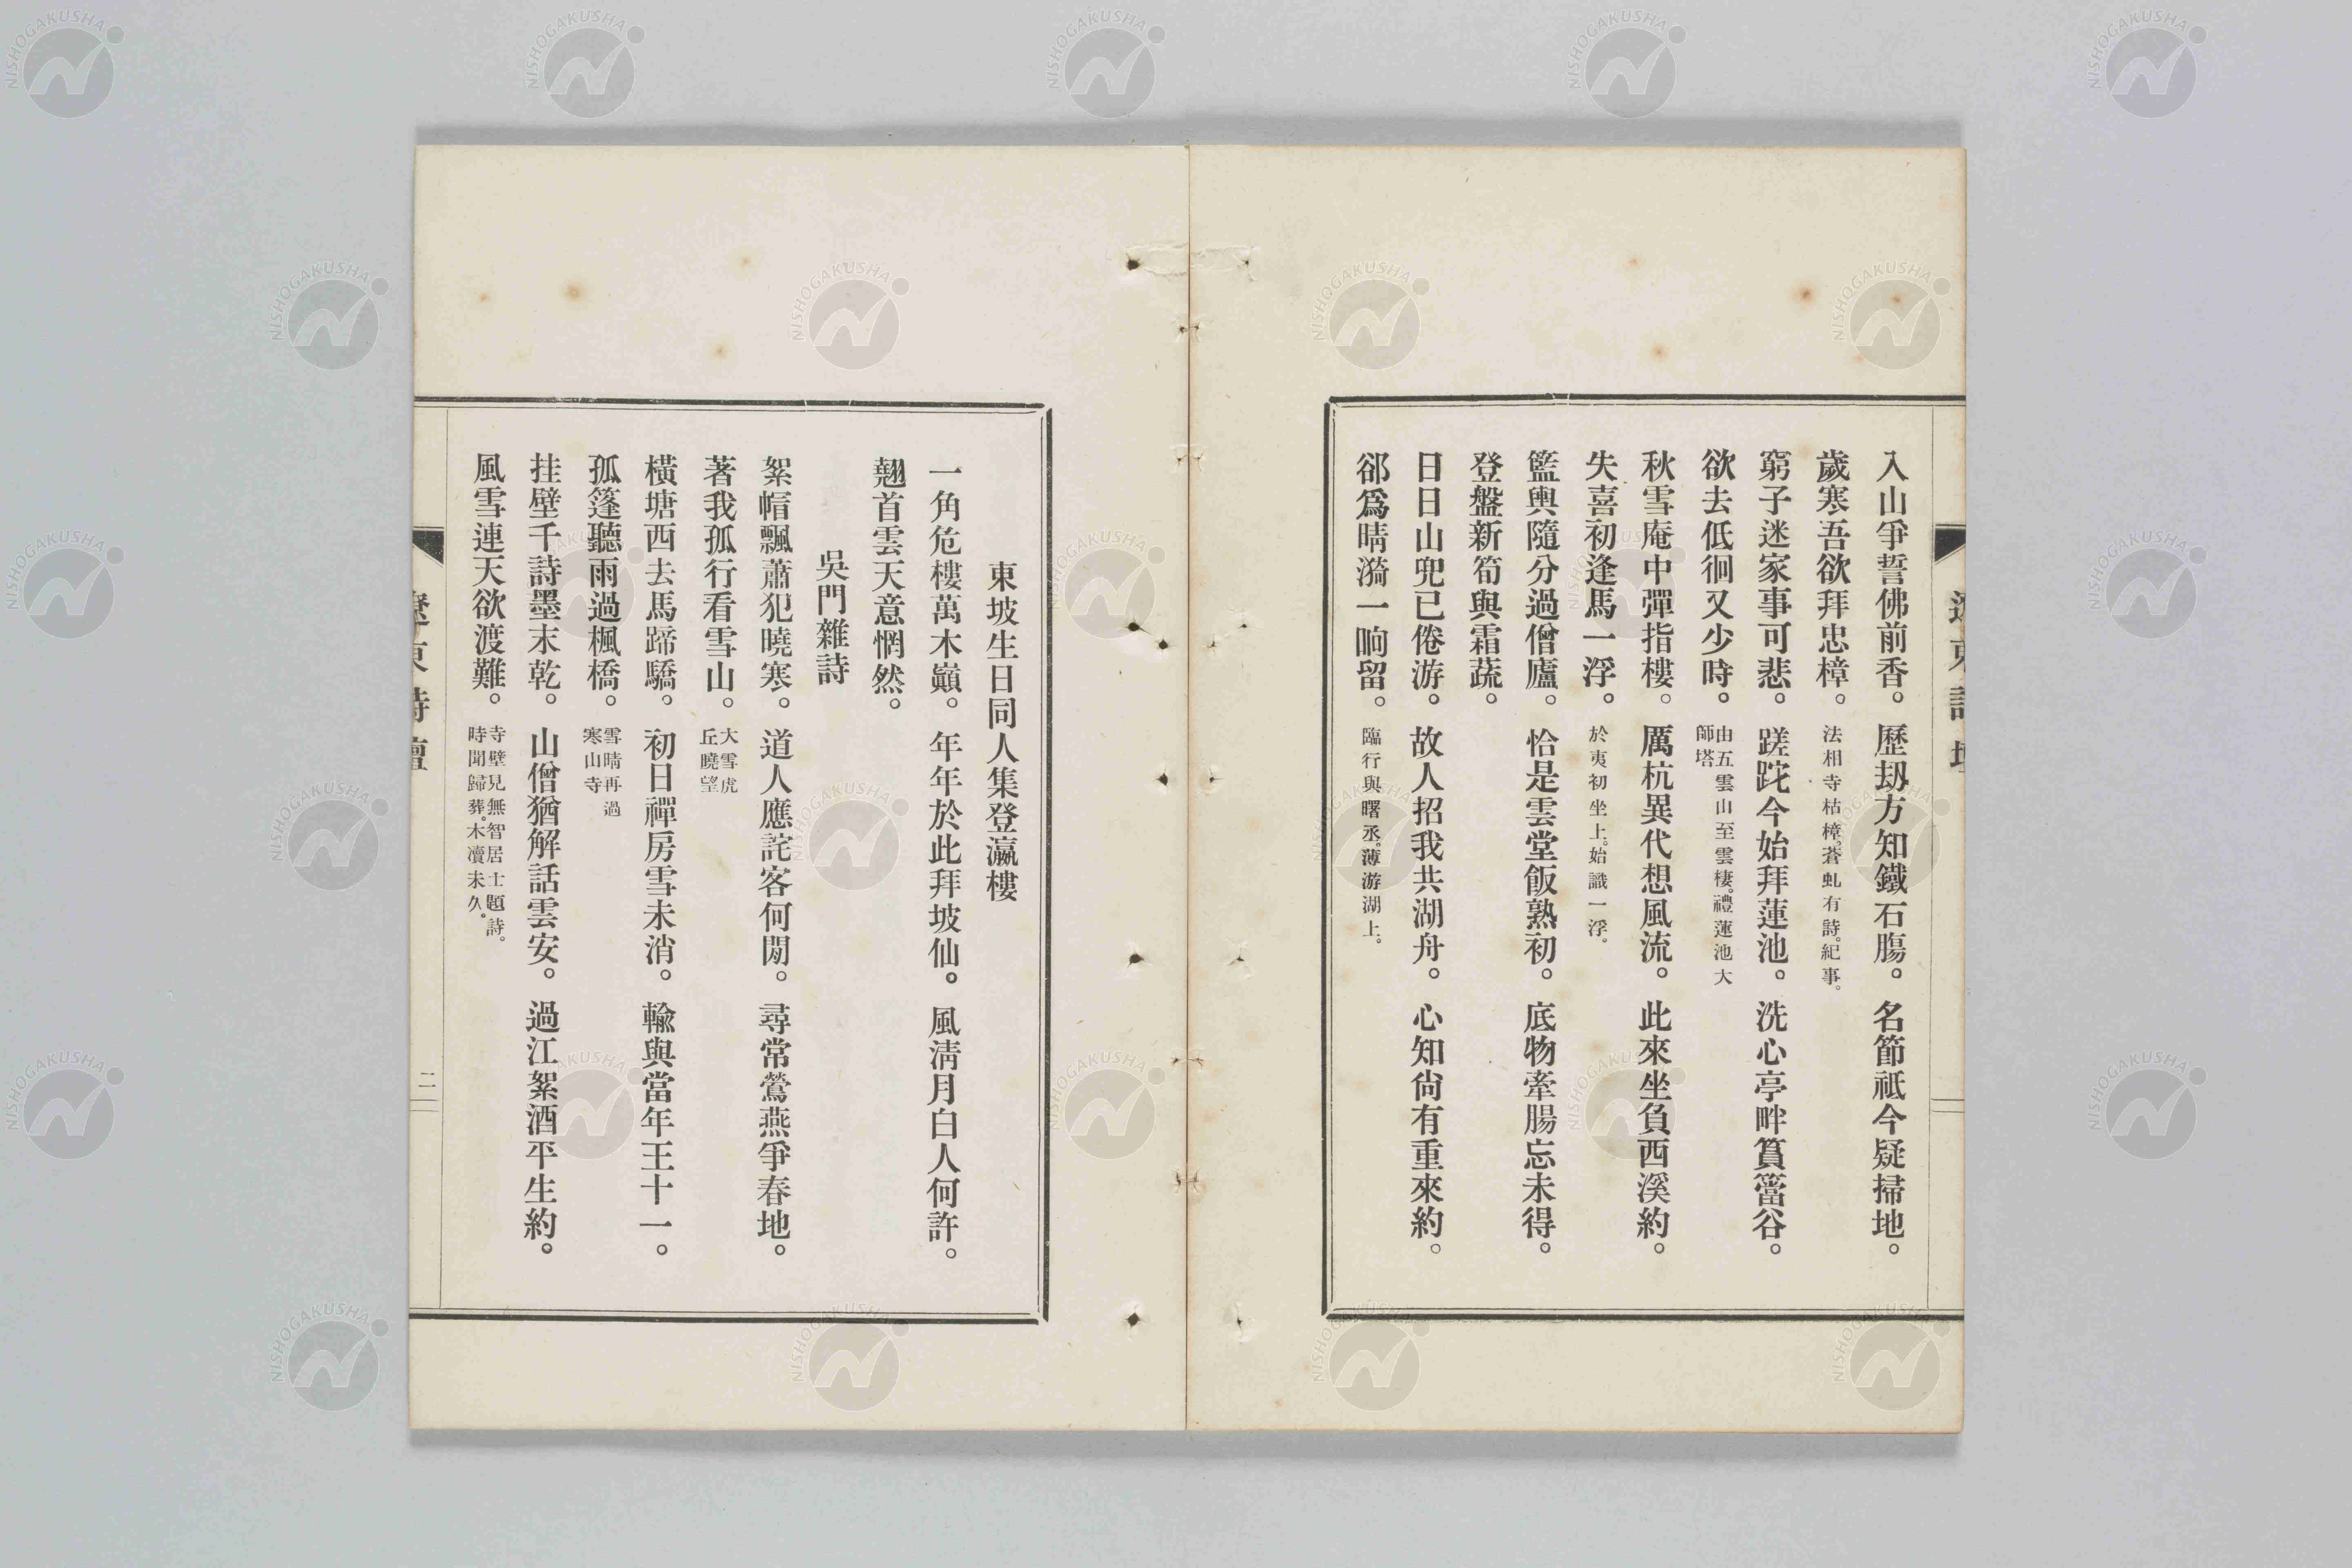 入山爭誓佛前香。歷刼方知鐵石膓。名節祗今疑掃地。
歲寒吾欲拜忠樟。法相寺枯樟。蒼虬有詩。紀事。
窮子迷家事可悲。蹉跎今始拜蓮池。洗心亭畔篔簹谷。
欲去低徊又少時。由五雲山至雲棲。禮蓮池大
師塔
秋雪庵中彈指樓。厲杭異代想風流。此來坐負西溪約。
失喜初逢馬一浮。於夷初坐上。始識一浮。
籃輿隨分過僧廬。恰是雲堂飯熟初。底物牽腸忘未得。
登盤新筍與霜蔬。
日日山兜已倦游。故人招我共湖舟。心知尙有重來約。
郤爲晴漪一晌留。臨行與曙丞。薄游湖上。
東坡生日同人集登瀛樓
一角危樓萬木巓。年年於此拜坡仙。風淸月白人何許。
翹首雲天意惘然。
吳門雜詩
絮帽飄蕭犯曉寒。道人應詫客何閒。尋常鶯燕爭春地。
著我孤行看雪山。大雪虎
丘曉望
橫塘西去馬蹄驕。初日禪房雪未消。輸與當年王十一。
孤篷聽雨過楓橋。雪晴再過
寒山寺
挂壁千詩墨末乾。山僧猶解話雲安。過江絮酒平生約。
風雪連天欲渡難。寺壁見無智居士題詩。
時聞歸葬。木瀆未久。
遼東詩壇
二
NISHOGAKUSHA